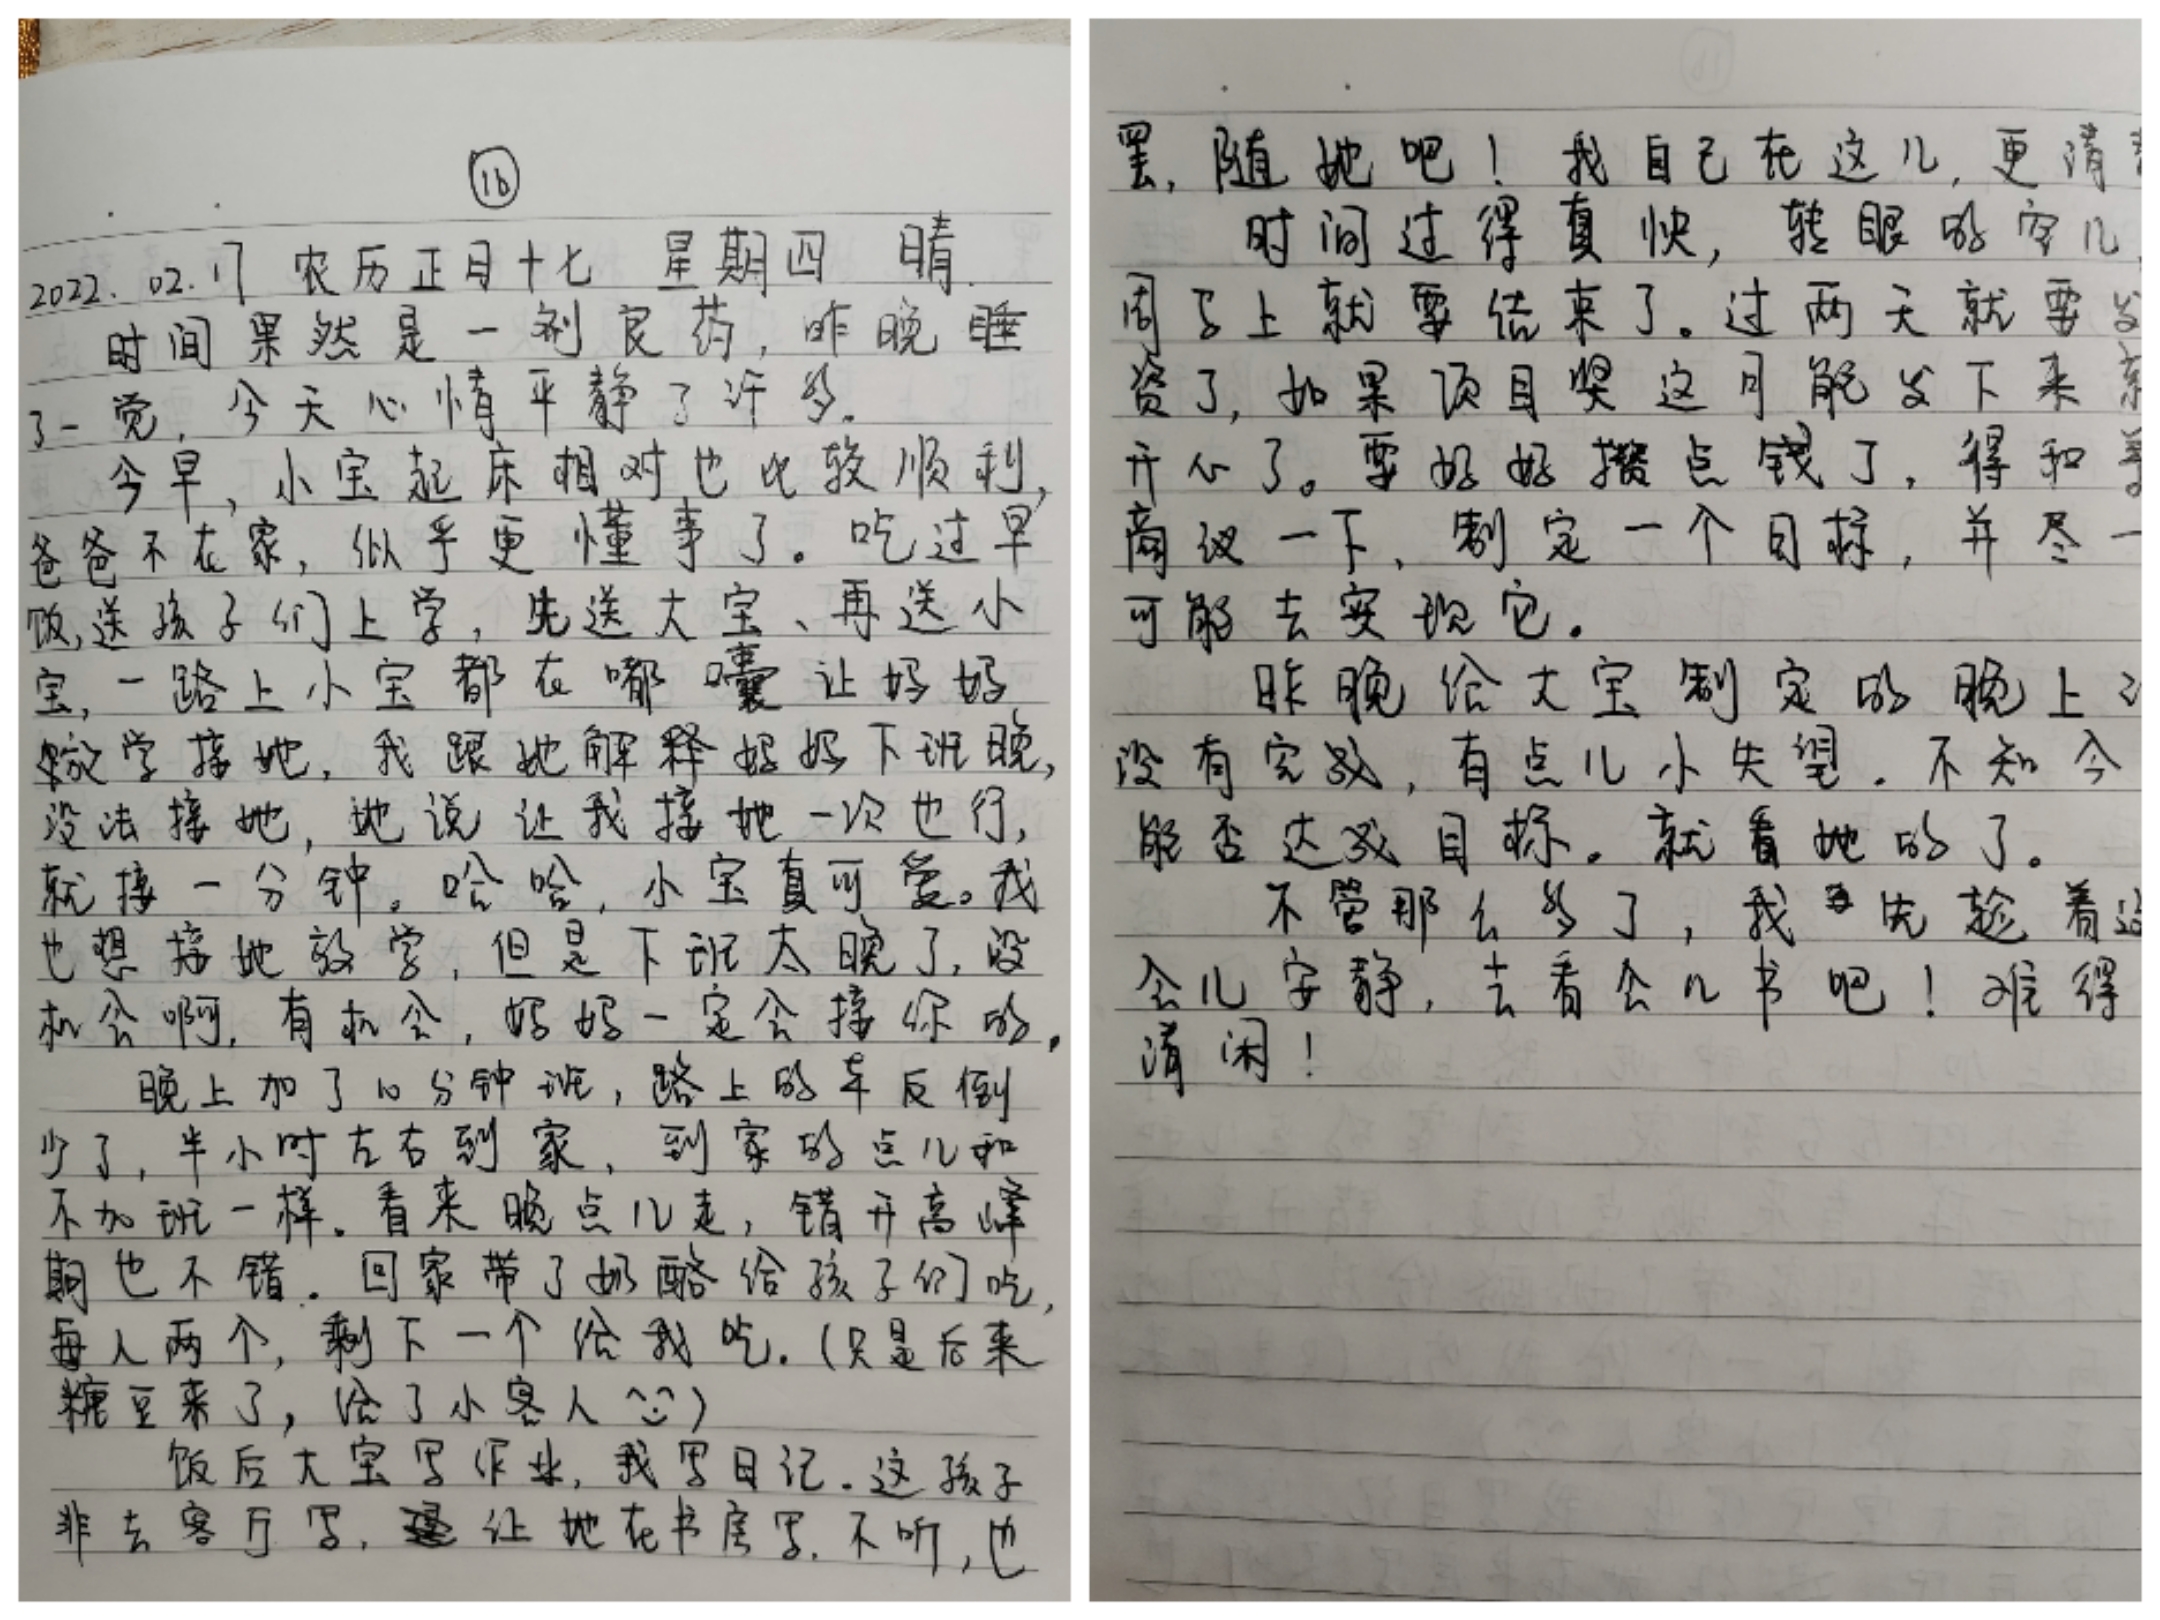 16
2022. 02. 17 农历正月十七 星期四 晴.
时间果然是一剂良药, 昨晚睡
了一觉, 今天心情平静了许多.
今早, 小宝起床相对也比较顺利,
爸爸不在家, 似乎更懂事了。吃过早
饭, 送孩子们上学, 先送大宝、再送小
宝, 一路上小宝都在嘟囔让妈妈
放学接她, 我跟她解释妈妈下班晚,
没法接她, 她说让我接她一次也行,
就接一分钟。哈哈, 小宝真可爱。我
也想接她放学, 但是下班太晚了, 没
机会啊, 有机会, 妈妈一定会接你的.
晚上加了10分钟班, 路上的车反倒
少了, 半小时左右到家, 到家的点儿和
不加班一样。看来晚点儿走, 错开高峰
期也不错. 回家带了奶酪给孩子们吃,
每人两个, 剩下一个给我吃. (只是后来
糖豆来了, 给了小客人^_^)
饭后大宝写作业, 我写日记. 这孩子
非去客厅写, 让她在书房写, 不听, 也
罢, 随她吧! 我自己在这儿, 更清
时间过得真快, 转眼的空儿,
周马上就要结束了。过两天就要发
资了, 如果项目奖这月能发下来
开心了。要好好攒点钱了, 得和
商议一下, 制定一个目标, 并尽一
可能去实现它。
昨晚给大宝制定的晚上
没有完成, 有点儿小失望. 不知今
能否达成目标。就看她的了。
不管那么多了, 我先趁着这
会儿安静, 去看会儿书吧! 难得
清闲!